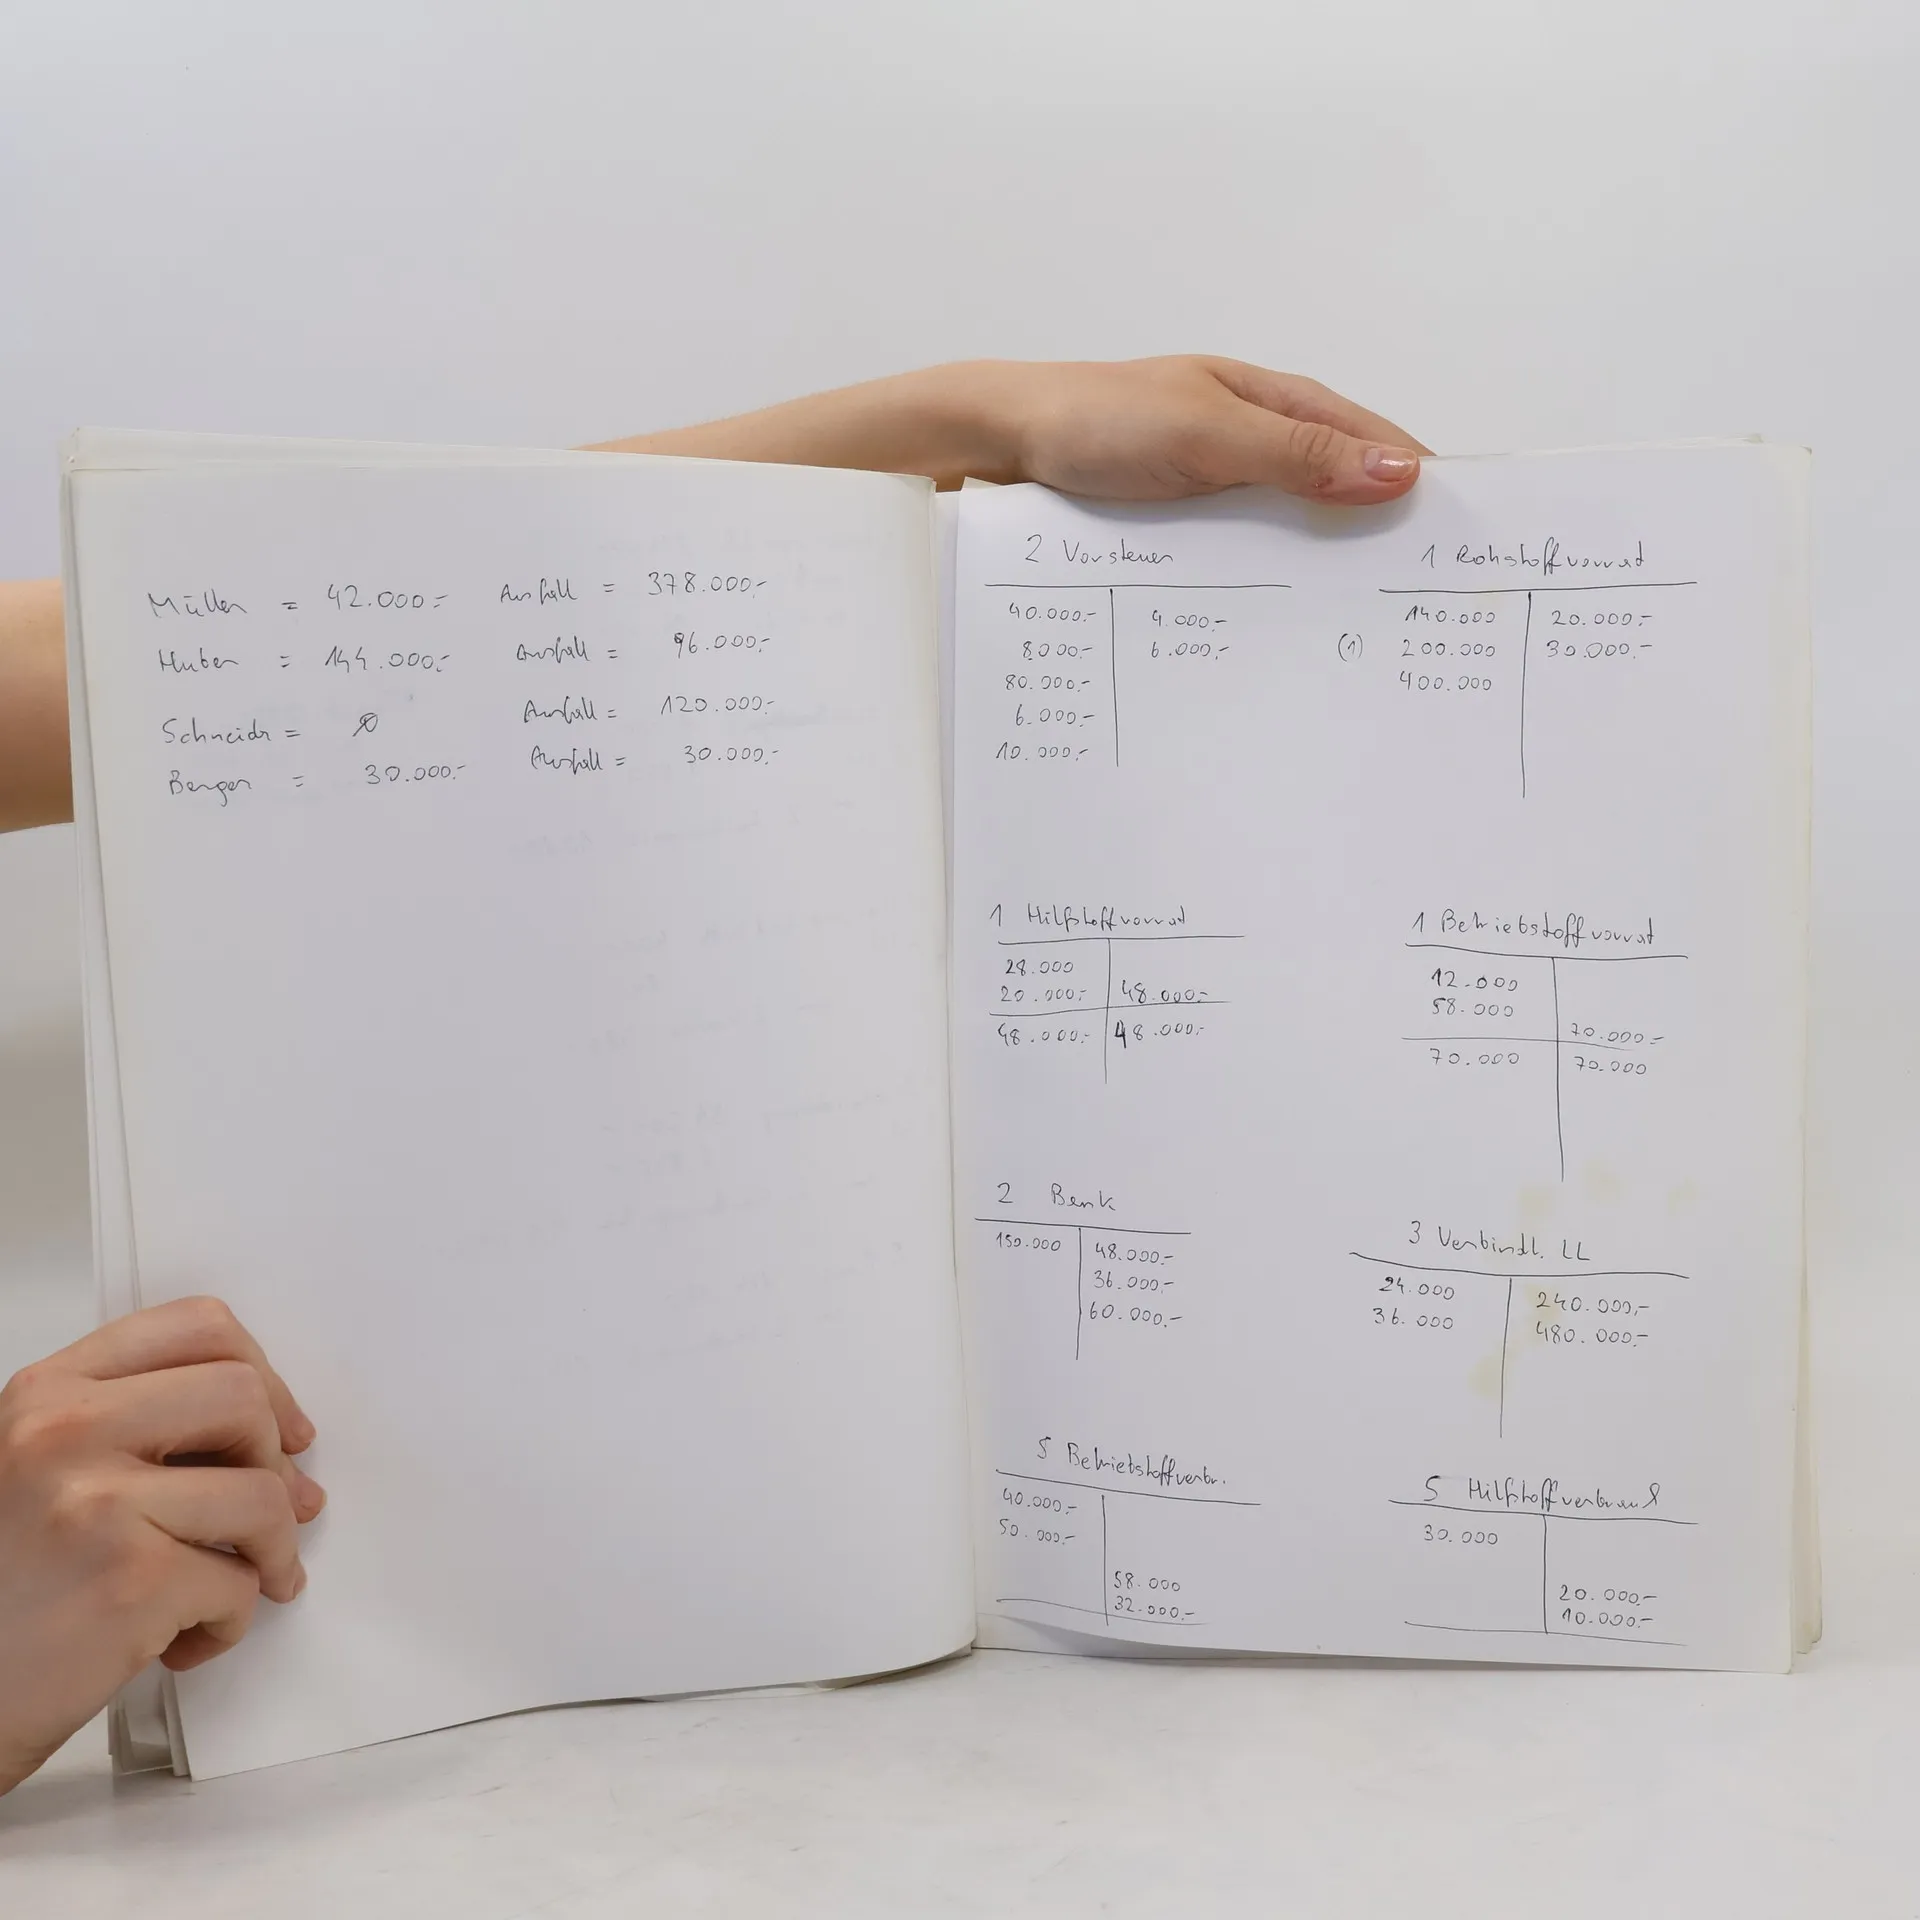 Müller = 42.000.- Ausfall = 378.000,-
Huber = 144.000,- Ausfall = 96.000,-
Schneidr = 0 Ausfall = 120.000,-
Berger = 30.000.- Ausfall = 30.000,-
2 Vorsteuer
40.000,- 4.000,-
8.000,- 6.000,-
80.000,-
6.000,-
10.000,-
1 Rohstoffvorrat
140.000 20.000,-
(1) 200.000 30.000,-
400.000
1 Hilfstoffvorrat
28.000
20.000,- 48.000,-
48.000,- 48.000,-
1 Betriebstoffvorrat
12.000
58.000
70.000,-
70.000 70.000
2 Bank
150.000 48.000,-
36.000,-
60.000,-
3 Verbindl. LL
24.000 240.000,-
36.000 480.000,-
5 Betriebstoffverbr.
40.000,-
50.000,-
58.000
32.000,-
5 Hilfstoffverbrauch
30.000
20.000,-
10.000,-